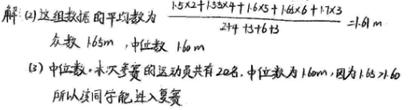 解:(2)这组数据的平均数为 (1.5×2+1.55×4+1.6×5+1.65×6+1.7×3)/(2+4+5+6+3) =1.61m
众数 1.65m ,中位数 1.60m
(3) 中位数,本次参赛的运动员共有20名,中位数为1.60m,因为1.65>1.60
所以该同学能进入复赛